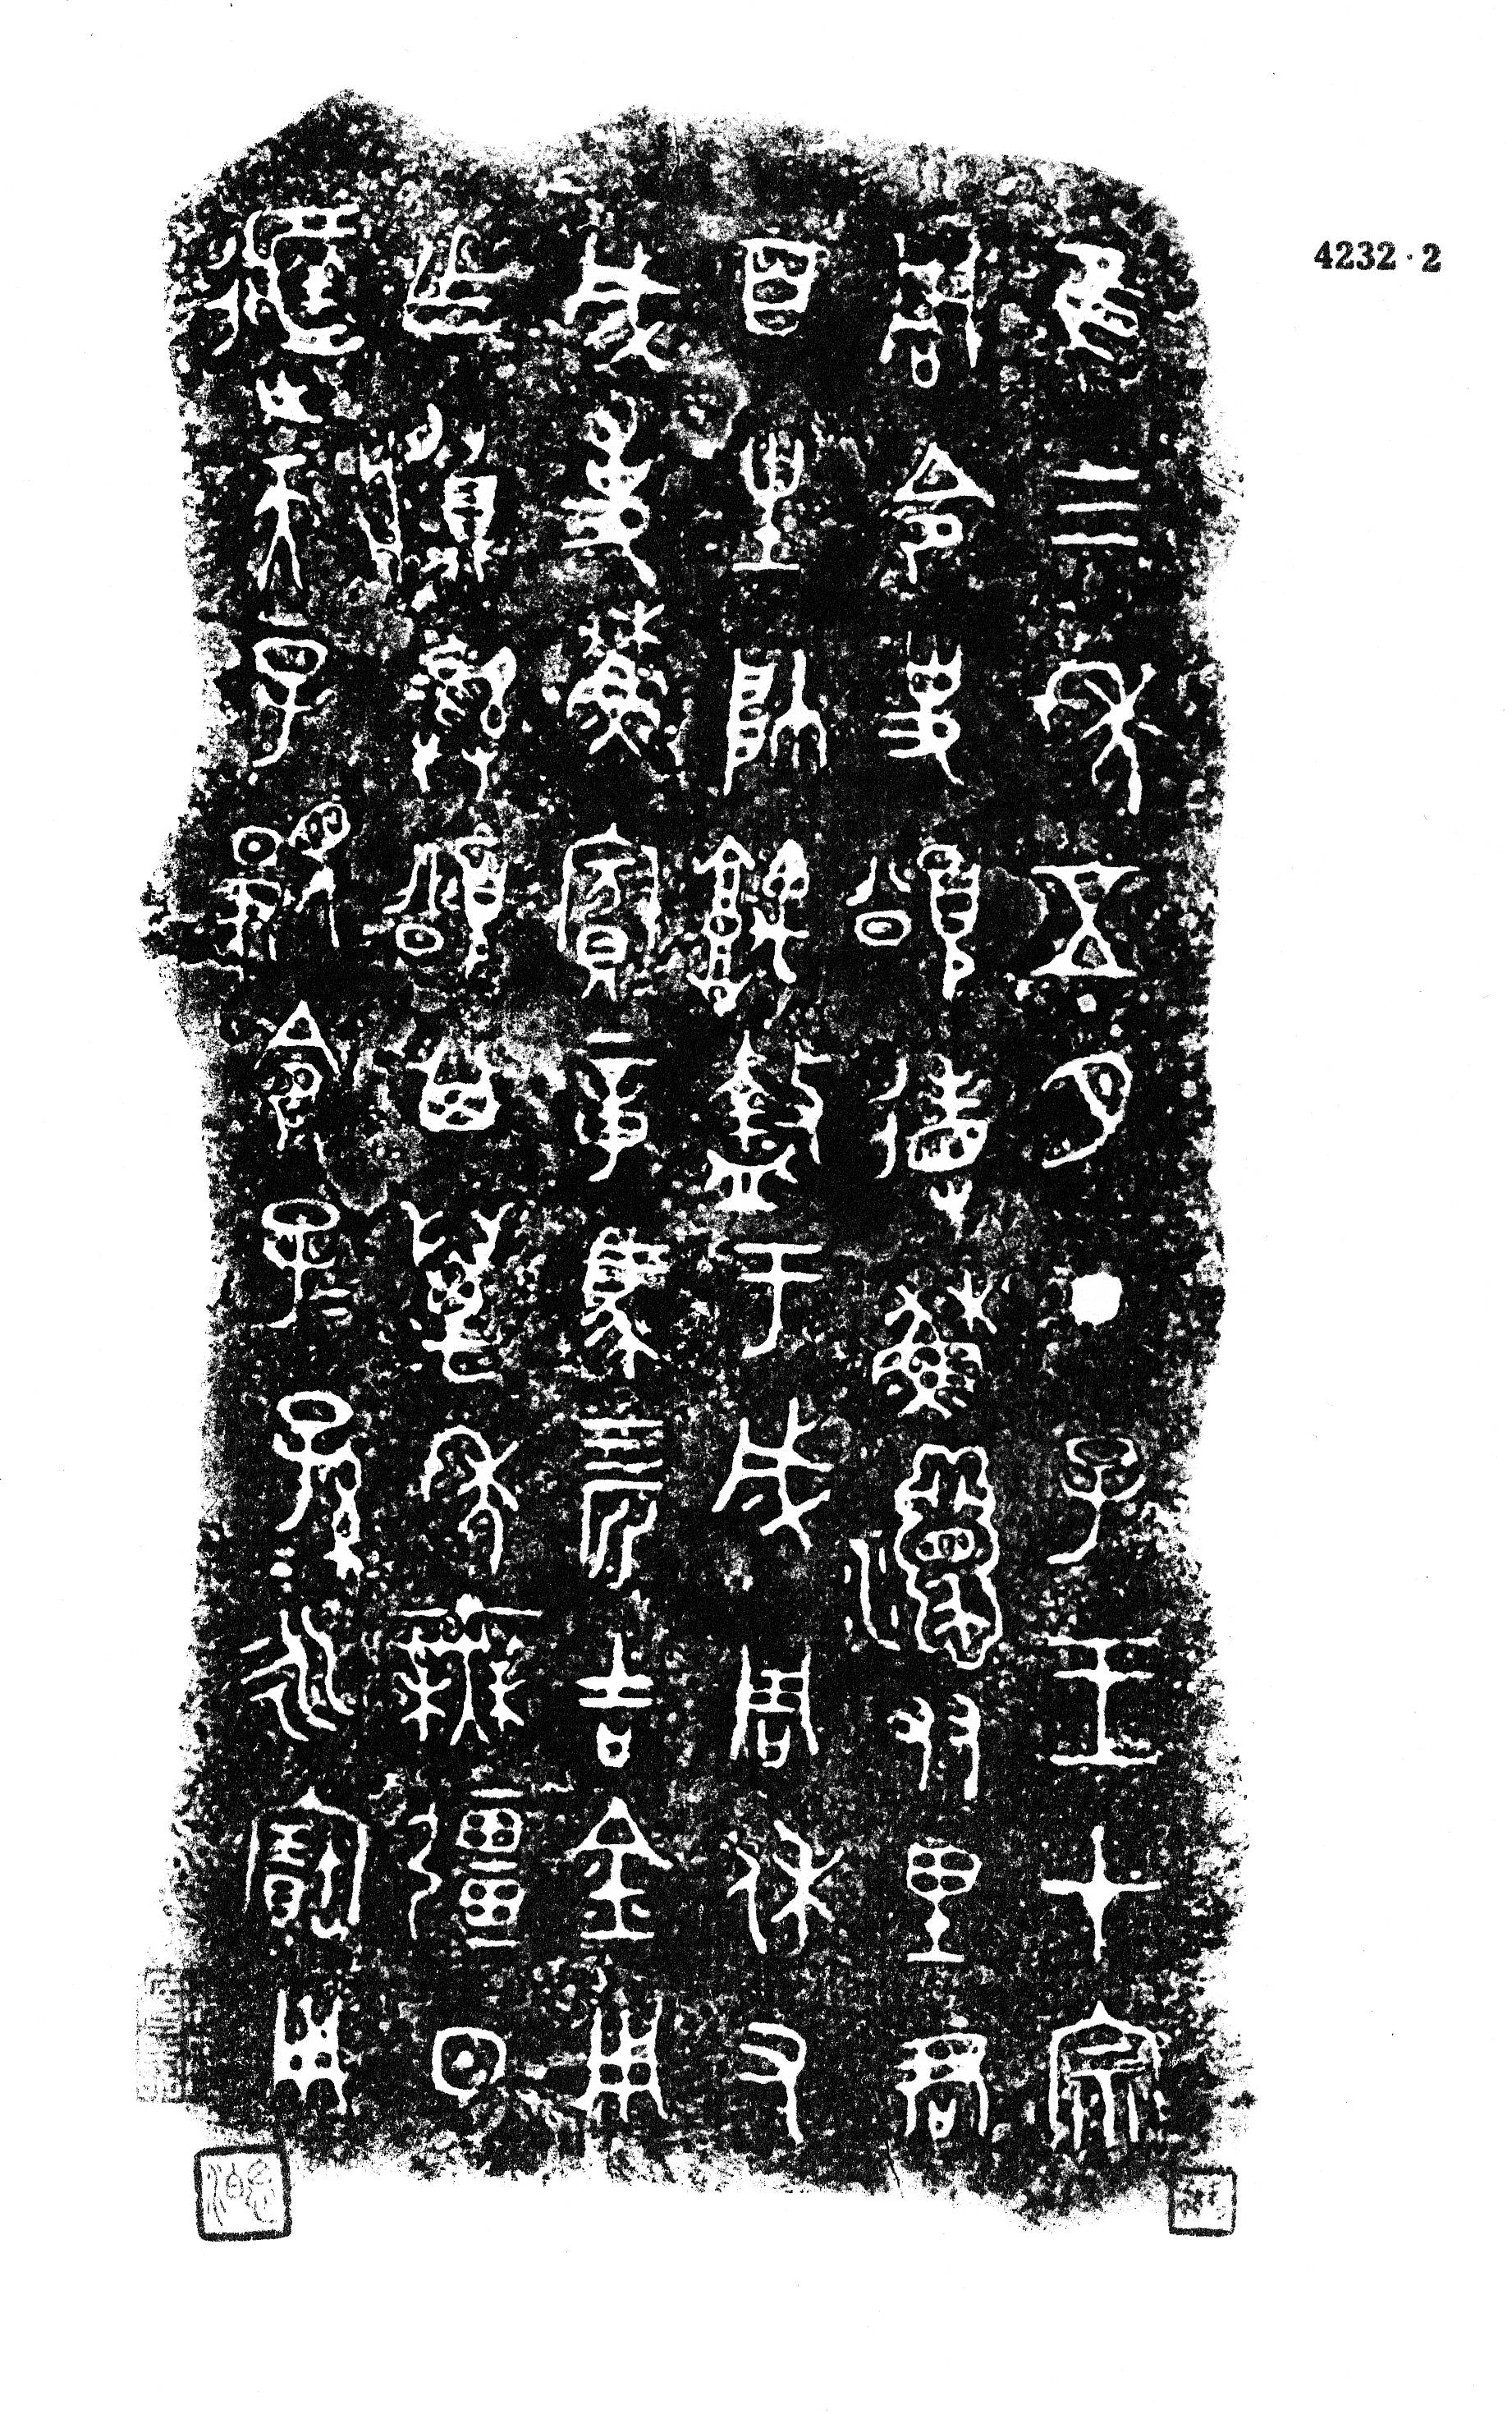 隹三年五月丁子王才宗
周令史頌省穌友里君
百生帥堣盩于成周休又
成事穌賓章馬亖匹吉金用
乍䵼彝頌其萬年無疆日
天子顯令子=孫=永寶用
4232·2